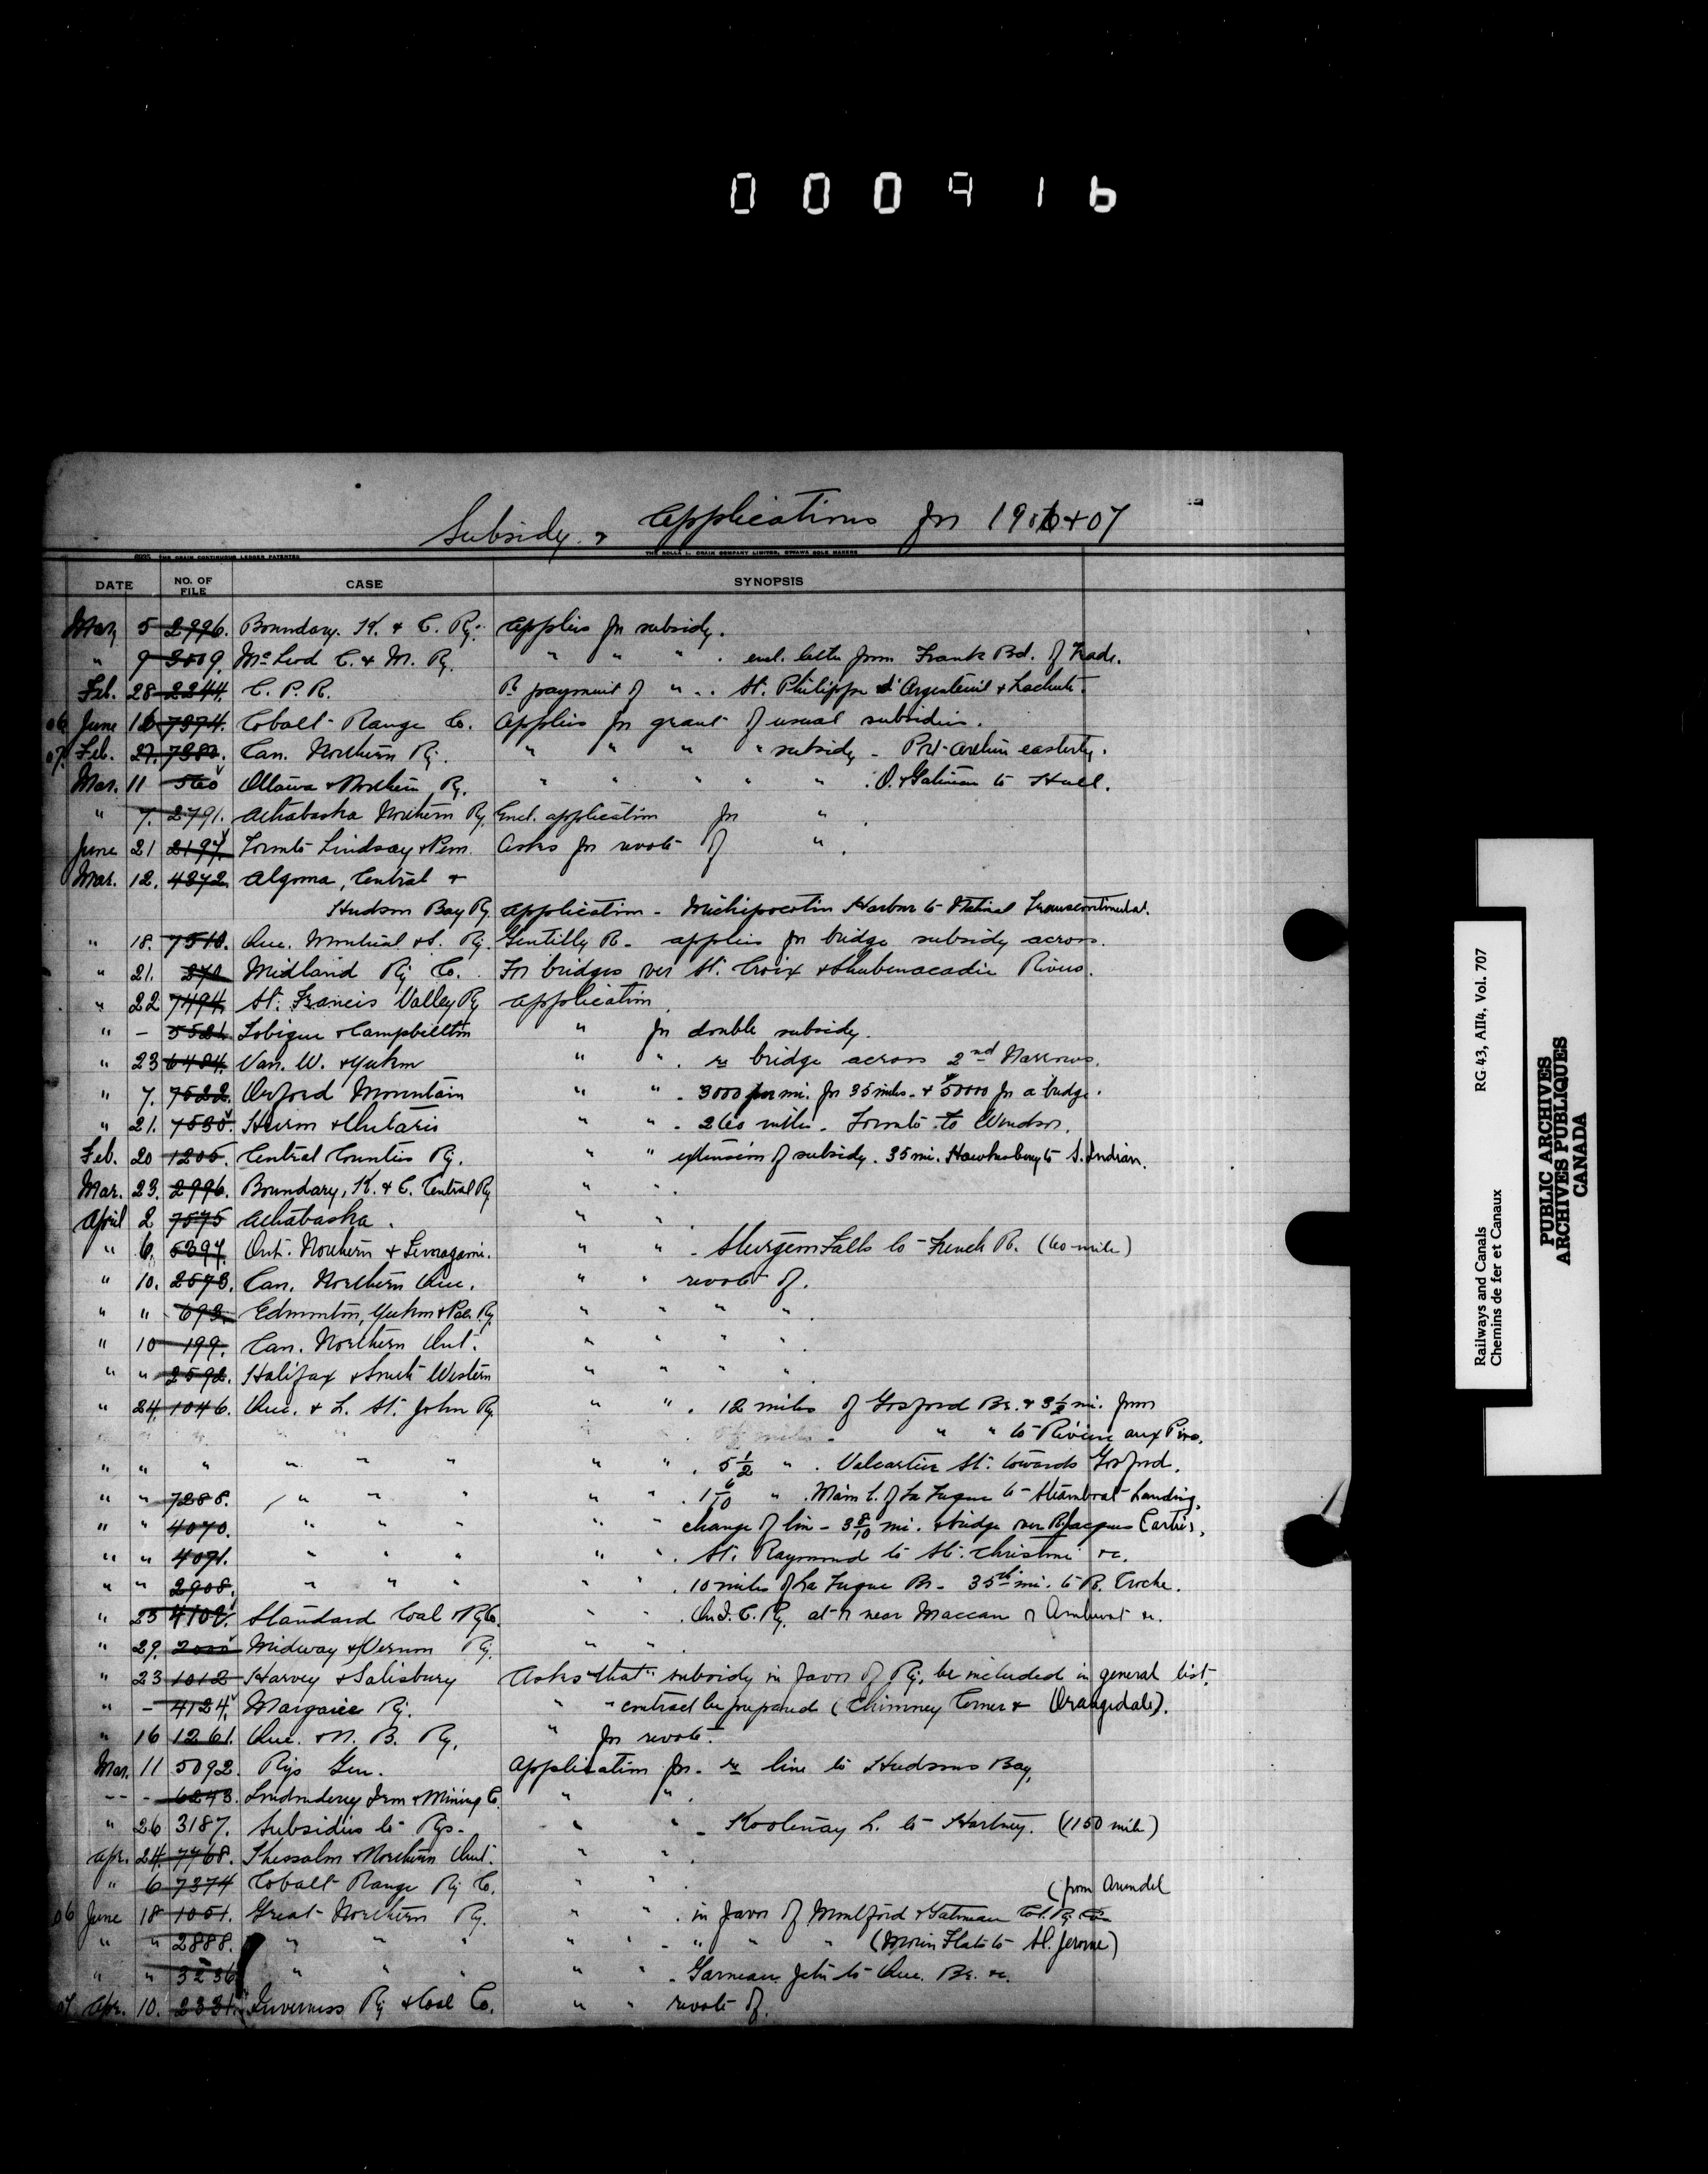 000916
Subsidy Applications for 1906+07
THE CRAIN CONTINUOUS LEDGER PATENTED
THE ROLLA L. CRAIN COMPANY LIMITED, OTTAWA SOLE MAKERS
DATE NO. OF FILE CASE SYNOPSIS
Mar 5 2996. Boundary. K. & C. Ry. applies for subsidy.
" 9 3009. McLeod C. & M. Ry. " " " . encl. letter from Frank Bd. of Trade.
Feb. 28 2244. C. P. R. Re payment of " . . St. Philippe d'Argenteuil & Lachute.
06 June 16 7374. Cobalt Range Co. applies for grant of usual subsidies.
07. Feb. 27. 7382. Can. Northern Ry. " " " " subsidy - Port Arthur easterly.
Mar. 11 560 Ottawa & Northern Ry. " " " " " . O. & Gatineau to Hull.
" 7. 2791. Athabaska Northern Ry. Encl. application for " .
June 21 2197. Toronto Lindsay & Pem. Asks for revote of " .
Mar. 12. 4372. Algoma, Central &
Hudson Bay Ry. application - Michipocotin Harbor to National Transcontinental.
" 18. 7510. Que. Montreal & S. Ry. Gentilly R. - applies for bridge subsidy across.
" 21. 270 Midland Ry Co. For bridges over St. Croix & Shubenacadie Rivers.
" 22 7494. St. Francis Valley Ry application.
" - 5521. Tobique & Campbellton " for double subsidy.
" 23 6484. Van. W. & Yukon " " . re bridge across 2nd Narrows.
" 7. 7522. Orford Mountain " " . 3000 per mi. for 35 miles. & $50000 for a bridge.
" 21. 7530. Huron & Ontario " " . 260 miles. Toronto to Windsor.
Feb. 20 1205. Central Counties Ry. " " extension of subsidy. 35 mi. Hawkesbury to S. Indian.
Mar. 23. 2996. Boundary, K. & C. Central Ry " " .
April 2 7575 Athabaska. " " .
" 6. 5397. Ont. Northern & Temagami. " " - Sturgeon Falls to French R. (60 mile)
" 10. 2573. Can. Northern Que. " " revote of.
" " 693. Edmonton, Yukon & Pac. Ry. " " " " .
" 10 199. Can. Northern Ont. " " " " .
" " 2592. Halifax & South Western " " " " .
" 24. 1046. Que. & L. St. John Ry. " " . 12 miles of Gosford Br. & 3½ mi. from
" " to Rivière aux Pins.
" " " " " " " " . 5½ " . Valcartier St. towards Gosford.
" " 7288. " " " " " . 1 6/10 " . Main L. of La Tuque to Steamboat Landing.
" " 4070. " " " " " change of line - 3 8/10 mi. & bridge over R. Jacques Cartier.
" " 4091. " " " " " . St. Raymond to St. Christine &c.
" " 2908. " " " " " . 10 miles of La Tuque Br. - 35th mi. to R. Croche.
" 25 4102. Standard Coal & Ry Co. " " . On I. C. Ry. at or near Maccan or Amherst &c.
" 29. 2000 Midway & Vernon Ry. " " .
" 23 1012 Harvey & Salisbury Asks "that" subsidy in favor of Ry. be included in general list.
" - 4124. Margaree Ry. " " contract be prepared (Chimney Corner & Orangedale).
" 16 1261. Que. & N. B. Ry. " for revote.
Mar. 11 5092. Rys Gen. application for. re line to Hudsons Bay.
-- - 6243. Londonderry Iron & Mining C. " " .
" 26 3187. Subsidies to Rys. " " - Kootenay L. to Hartney. (1150 mile)
Apr. 24. 7768. Thessalon & Northern Ont. " " .
" 6 7374 Cobalt Range Ry Co. " " . (from Arundel
06 June 18 1051. Great Northern Ry. " " . in favor of Montford & Gatineau Col. Ry Co
" " 2888. " " " " " - " " " (Morin Flats to St. Jerome)
" " 3236 " " " " " - Garneau Jctn to Que. Br. &c.
07 Apr. 10. 2331. Inverness Ry & Coal Co. " " revote of.
Railways and Canals RG 43, AII4, Vol. 707
Chemins de fer et Canaux
PUBLIC ARCHIVES
ARCHIVES PUBLIQUES
CANADA